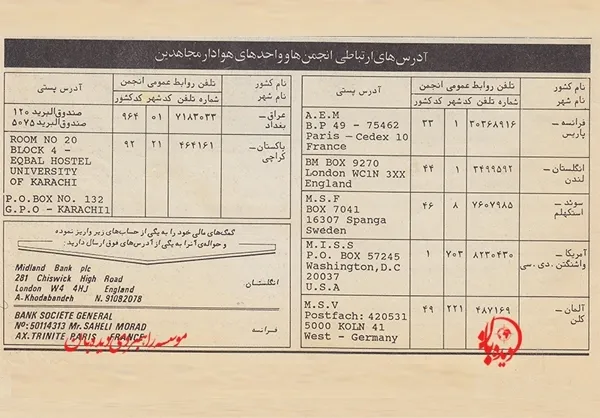 آدرس‌های ارتباطی انجمن‌ها و واحدهای هوادار مجاهدین
نام کشور
نام شهر
تلفن روابط عمومی انجمن
شماره تلفن کد شهر کد کشور
آدرس پستی
فرانسه –
پاریس
۳۰۳۶۸۹۱۶ ۱ ۳۳
A.E.M
B.P 49 - 75462
Paris - Cedex 10
France
انگلستان –
لندن
۳۴۹۹۵۹۲ ۱ ۴۴
BM BOX 9270
London WC1N 3XX
England
سوئد –
استکهلم
۷۶۰۷۹۸۵ ۸ ۴۶
M.S.F
BOX 7041
16307 Spanga
Sweden
آمریکا –
واشنگتن.دی.سی
۸۲۳۰۴۳۰ ۷۰۳ ۱
M.I.S.S
P.O. BOX 57245
Washington,D.C
20037
U.S.A
آلمان –
کلن
۴۸۷۱۶۹ ۲۲۱ ۴۹
M.S.V
Postfach: 420531
5000 KOLN 41
West - Germany
نام کشور
نام شهر
تلفن روابط عمومی انجمن
شماره تلفن کد شهر کد کشور
آدرس پستی
عراق –
بغداد
۷۱۸۳۰۳۳ ۰۱ ۹۶۴
صندوق‌البرید ۱۲۰
صندوق‌البرید ۵۰۷۵
پاکستان –
کراچی
۴۶۴۱۶۱ ۲۱ ۹۲
ROOM NO 20
BLOCK 4 -
EQBAL HOSTEL
UNIVERSITY
OF KARACHI
P.O.BOX NO. 132
G.P.O - KARACHI1
کمک‌های مالی خود را به یکی از حساب‌های زیر واریز نموده
و حواله‌ی آنرا به یکی از آدرس‌های فوق ارسال دارید:
انگلستان:
Midland Bank plc
281 Chiswick High Road
London W4 4HJ England
A-Khodabandeh N. 91082078
فرانسه:
BANK SOCIÉTÉ GENERAL
Nº:50114313 Mr. SAHELI MORAD
AX. TRINITE PARIS FRANCE
موسسه راهبردی دیده‌بان
دیده‌بان